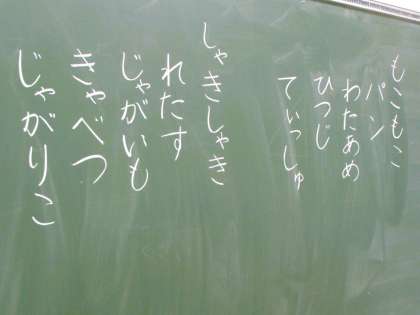 もこもこ
パン
わたあめ
ひつじ
てぃっしゅ
しゃきしゃき
れたす
じゃがいも
きゃべつ
じゃがりこ